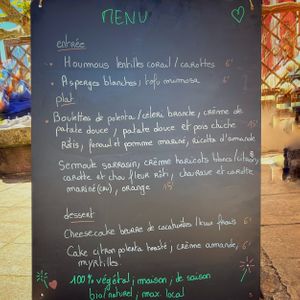 MENU
entrée
Hoummous lentilles corail / carottes 6€
Asperges blanches, tofu mimosa 6€
plat
Boulettes de polenta / céleri branche, crème de
patate douce, patate douce et pois chiche 15€
rôtis, fenouil et pomme marine, ricotta d'amande
Semoule sarrasin, crème haricots blancs / citron,
carotte et chou fleur rôti, chouraxe et carotte
mariné (cru), orange 15€
dessert
Cheesecake beurre de cacahuètes / kiwi frais 6€
Cake citron polenta toasté, crème amande, 6€
myrtilles
100% végétal, maison, de saison
bio / naturel, max local